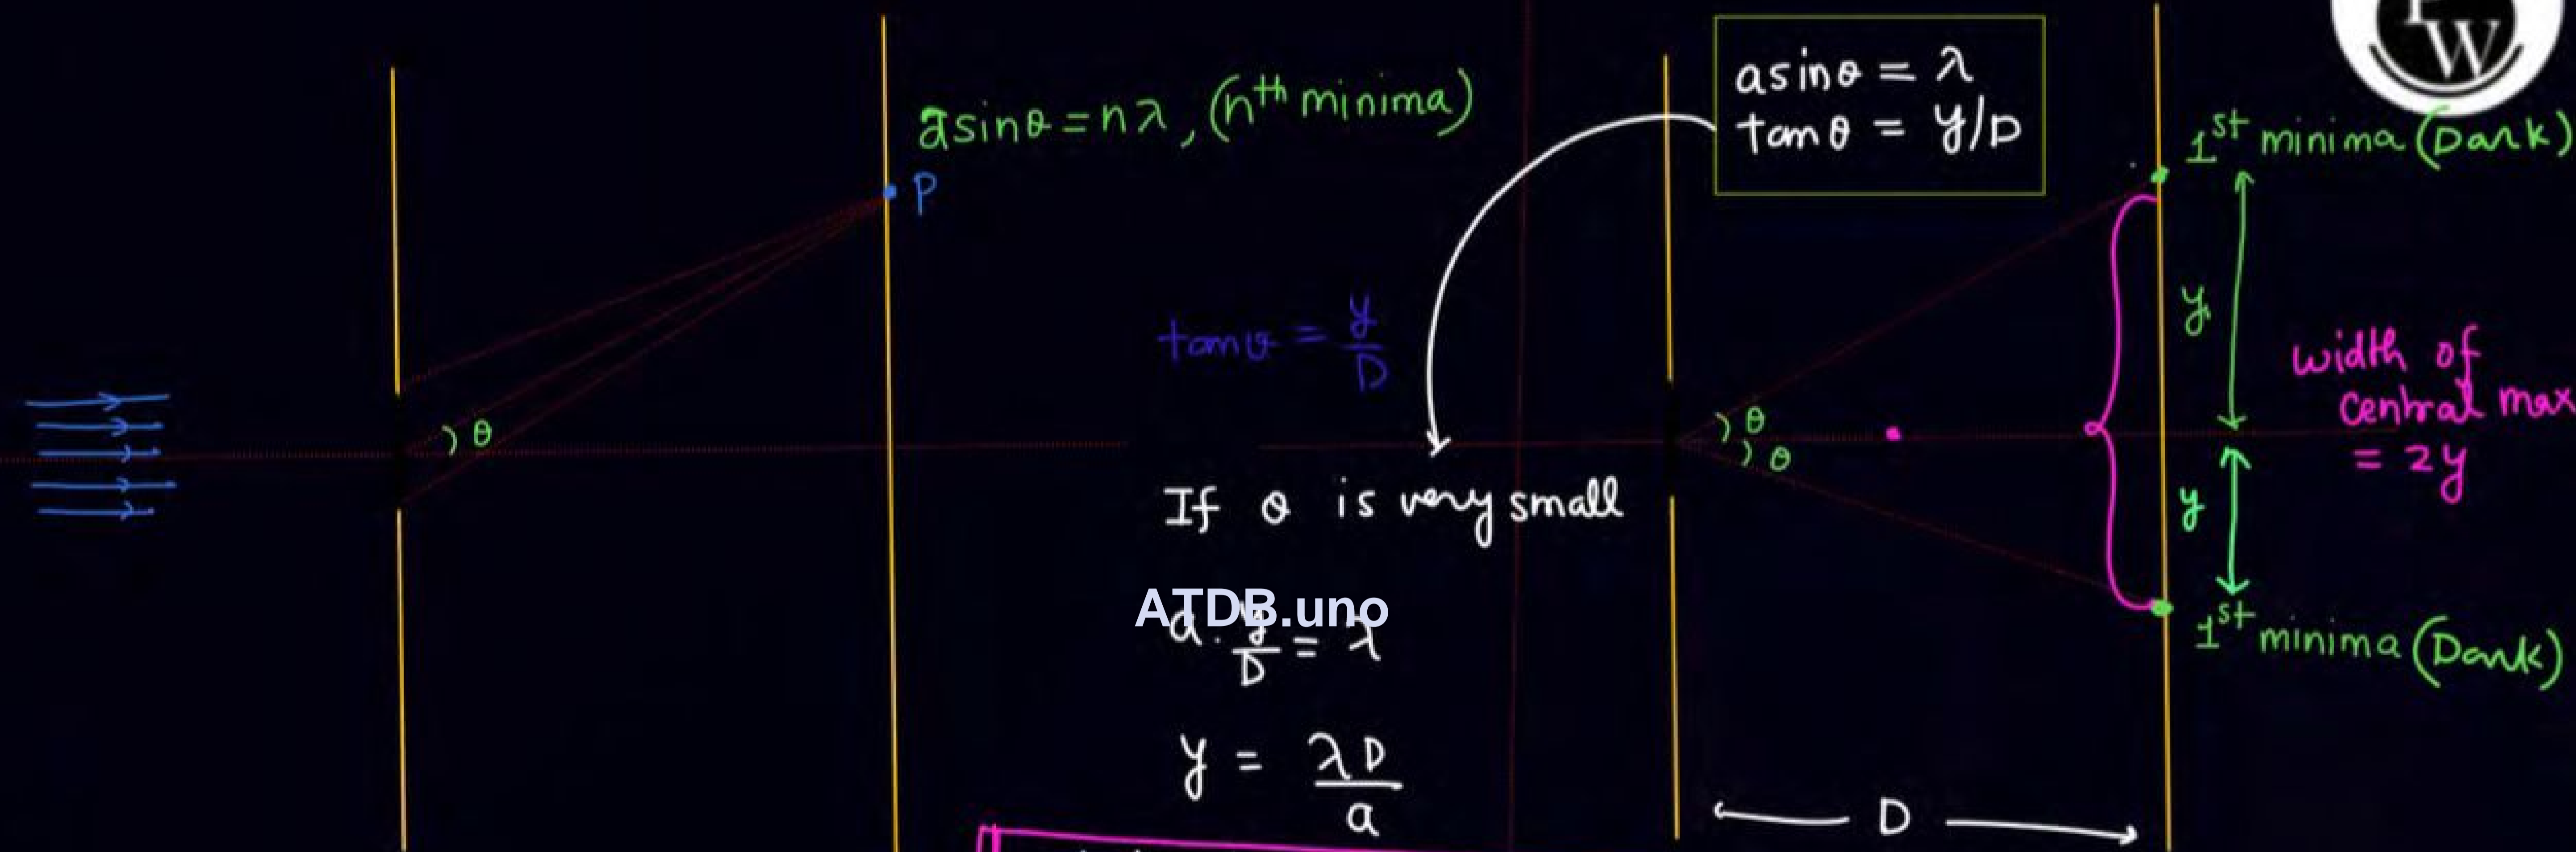 a sinθ = nλ, (nth minima)
P
θ
tanθ = y/D
a sinθ = λ
tanθ = y/D
If θ is very small
ATDB.uno
a . y/D = λ
y = λD/a
θ
θ
D
W
1st minima (Dark)
y
width of
central max
= 2y
y
1st minima (Dark)